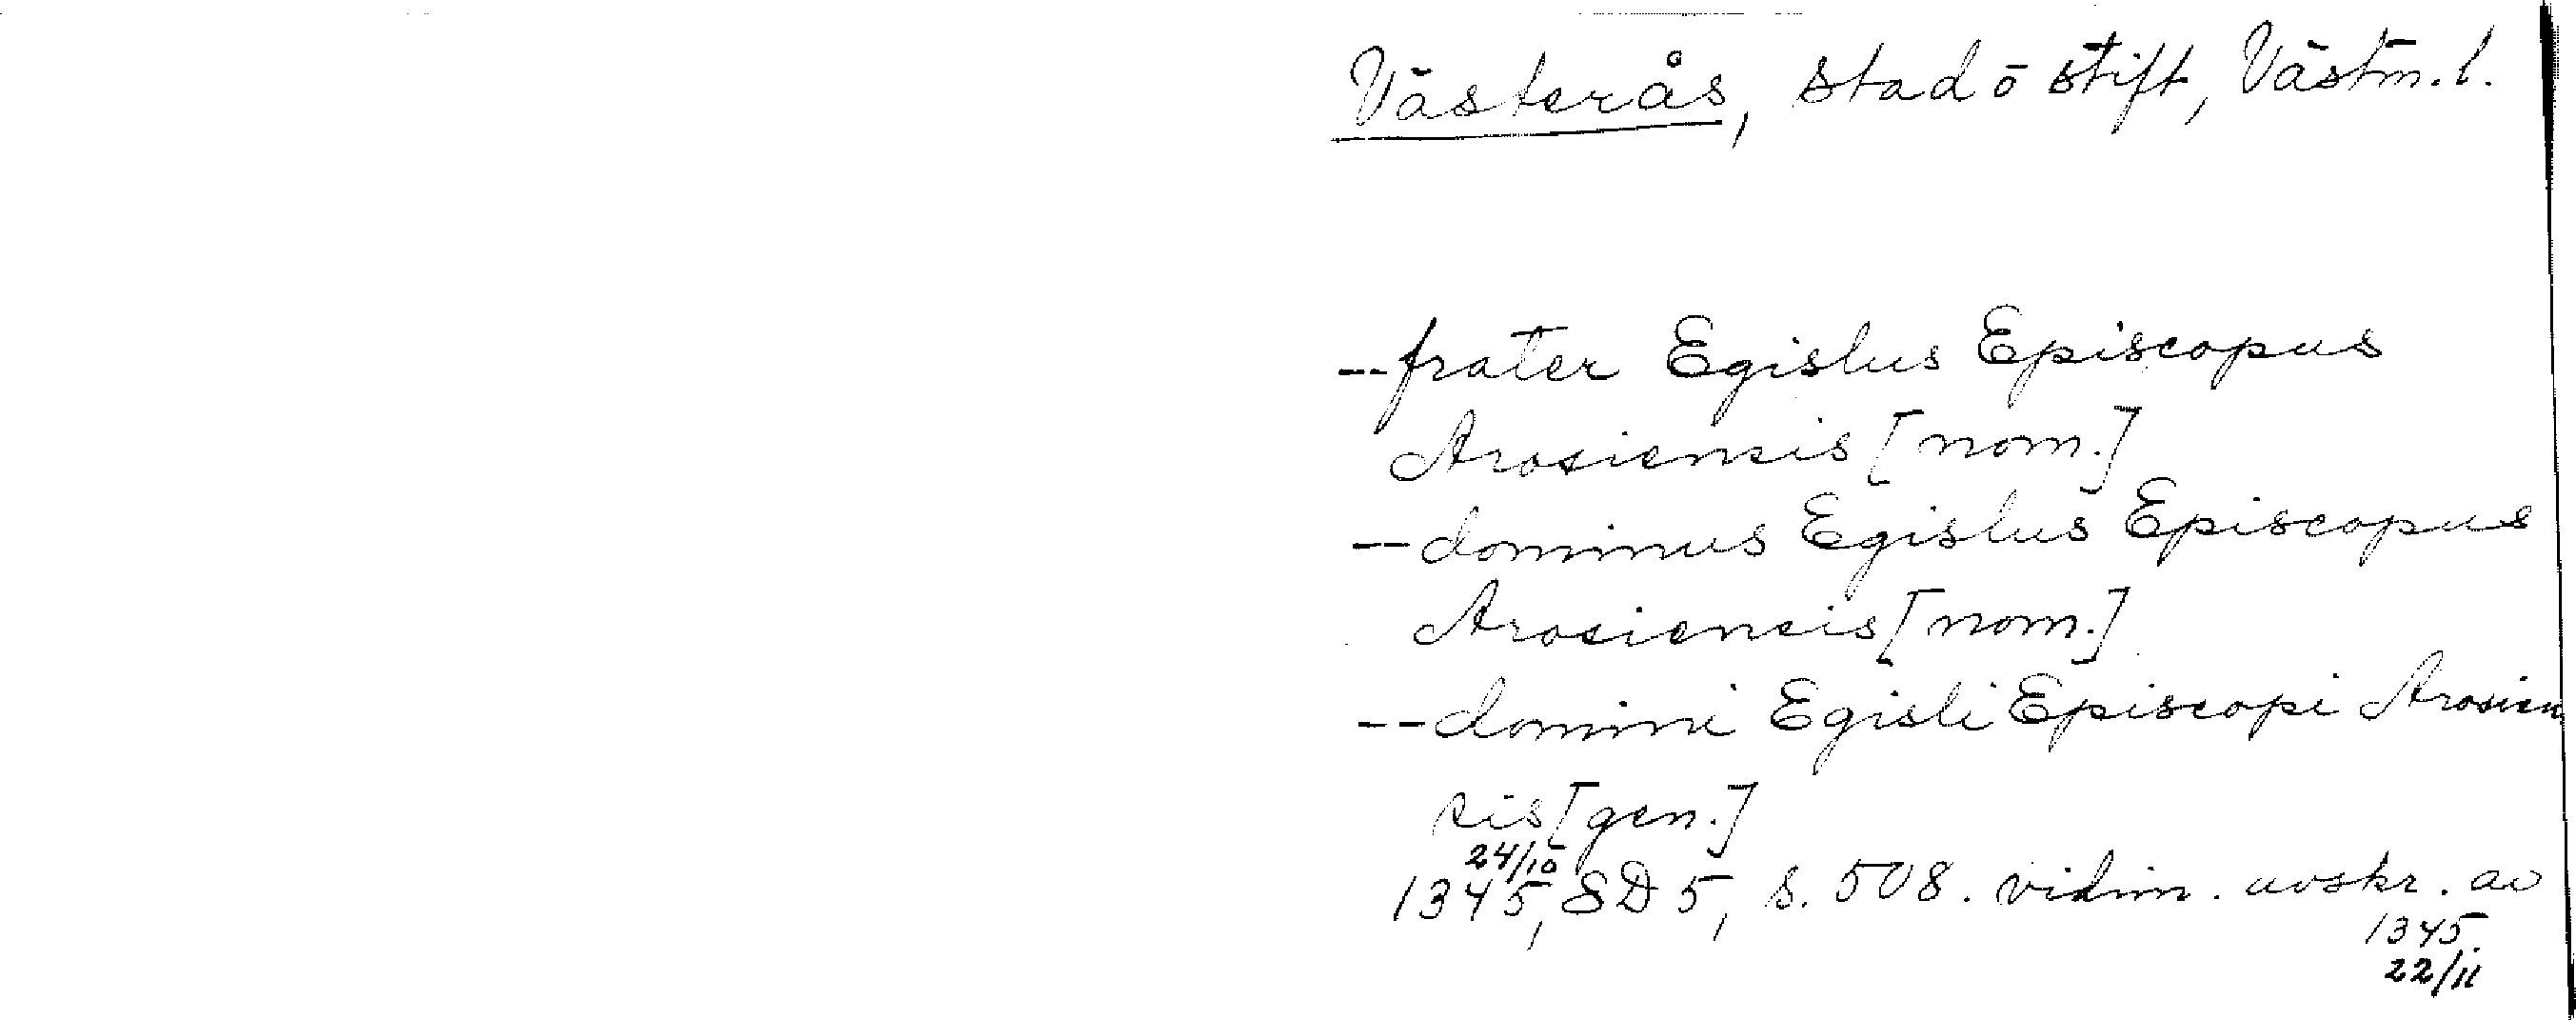 Västerås, stad o stift, Västm. l.
-- frater Egislus Episcopus
Arosiensis [nom.]
-- dominus Egislus Episcopus
Arosiensis [nom.]
-- domini Egisli Episcopi Arosien
sis [gen.]
24/10
1345, SD 5, s. 508. vidim. avskr. av
1345.
22/11